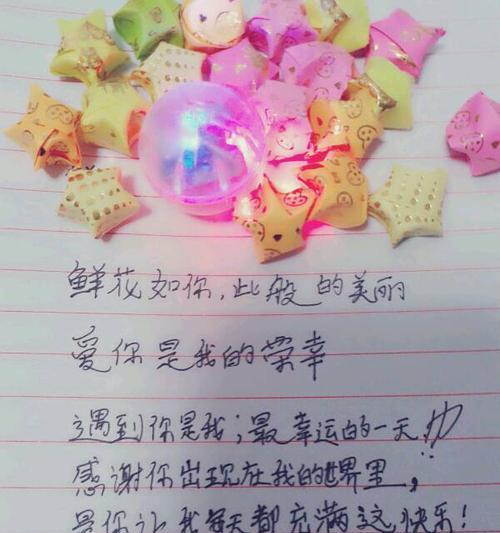 鲜花如你，此般的美丽
爱你是我的荣幸
遇到你是我；最幸运的一天
感谢你出现在我的世界里，
是你让我每天都充满这快乐！